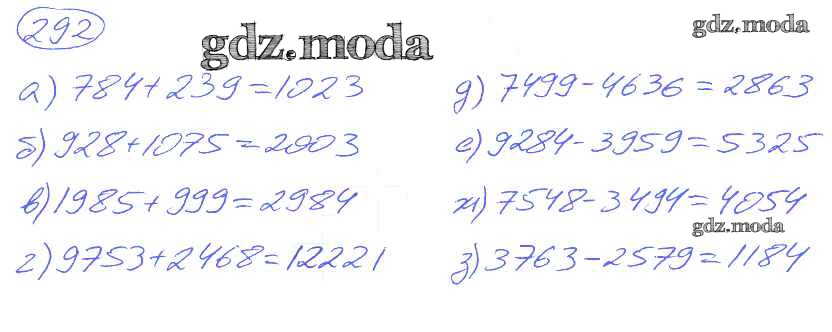 292
gdz.moda
gdz.moda
а) 784+239=1023
б) 928+1075=2003
в) 1985+999=2984
г) 9753+2468=12221
д) 7499-4636=2863
е) 9284-3959=5325
ж) 7548-3494=4054
gdz.moda
з) 3763-2579=1184